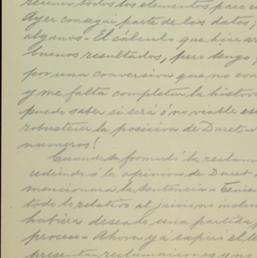 reunir todos los elementos para e
Ayer conseguí parte de los datos;
algunos. El cálculo que hice arr
buenos resultados, pero tengo
por una conversión que no con
y me falta completar la histor
puedo saber si será ó no viable es
robustecer la posición de Duret
números!
Cuando formulé la reclam
cediendo á la opinión de Duret
mencionara la sentencia
todo lo relativo al juicio
hubiera deseado una partida
proceso. Ahora ya expiró el
presentar reclamaciones y no